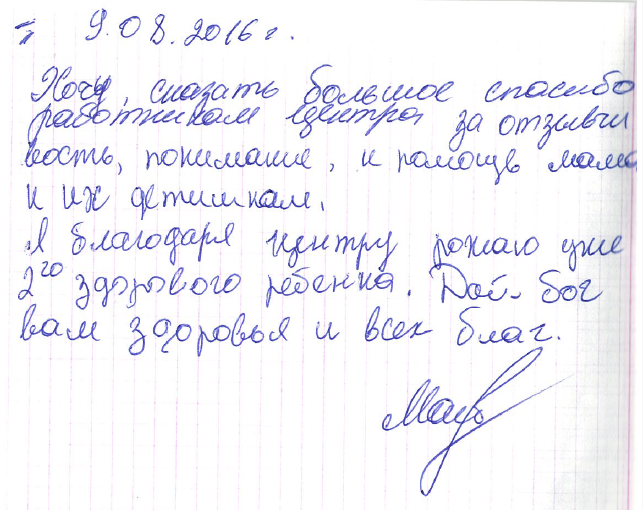 9.08.2016 г.
Хочу, сказать большое спасибо
работникам центра за отзывчи
вость, понимание, и помощь мама
и их детишкам.
Я благодаря центру рожаю уже
2го здорового ребенка. Дай бог
вам здоровья и всех благ.